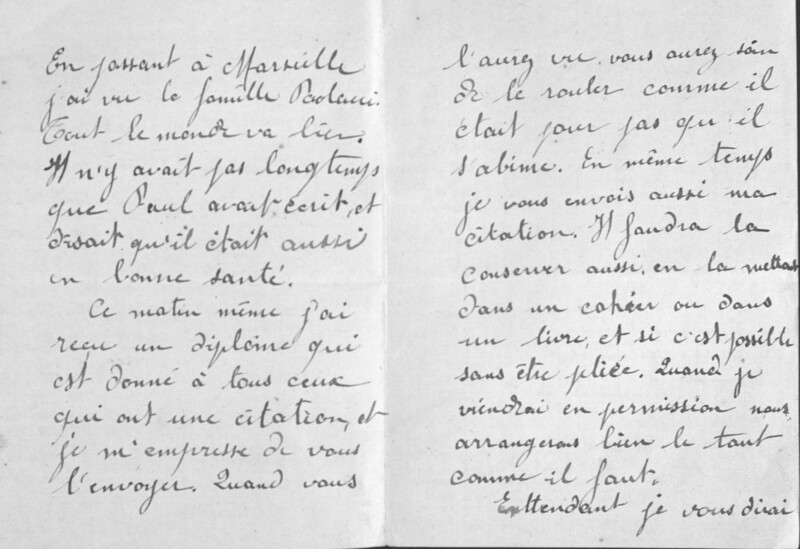 En passant à Marseille
j'ai vu la famille Paolacci.
Tout le monde va bien.
Il n'y avait pas longtemps
que Paul avait écrit, et
disait qu'il était aussi
en bonne santé.
Ce matin même j'ai
reçu un diplôme qui
est donné à tous ceux
qui ont une citation, et
je m'empresse de vous
l'envoyer. Quand vous
l'aurez vu, vous aurez soin
de le rouler comme il
était pour pas qu'il
s'abime. En même temps
je vous envois aussi ma
citation. Il faudra la
conserver aussi, en la mettant
dans un cahier ou dans
un livre, et si c'est possible
sans être pliée. Quand je
viendrai en permission nous
arrangerons bien le tout
comme il faut.
Enttendant je vous dirai